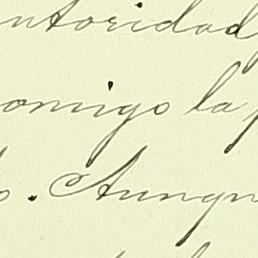 utoridad
omigo la
o. Aunqu